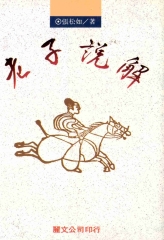 ⊙張松如/著
老子說解
麗文公司印行